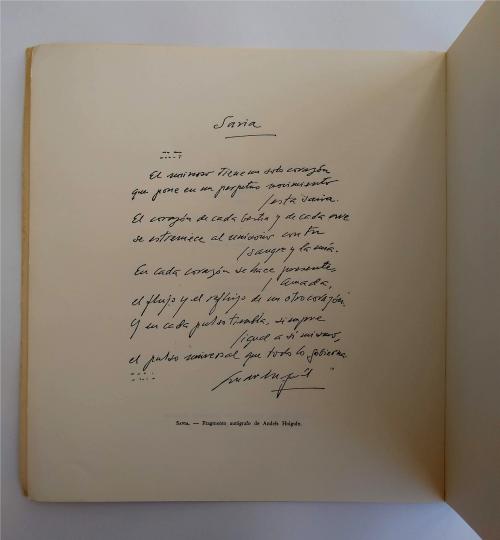 Savia
El universo tiene un solo corazón
que pone en un perpetuo movimiento
/esta savia.
El corazón de cada bestia y de cada ave
se estremece al unísono con tu
/sangre y la mía.
En cada corazón se hace presente,
/amada,
el flujo y el reflujo de un otro corazón.
Y en cada pulso tiembla, siempre
/igual a sí mismo,
el pulso universal que todo lo gobierna.
SAVIA. — Fragmento autógrafo de Andrés Holguín.